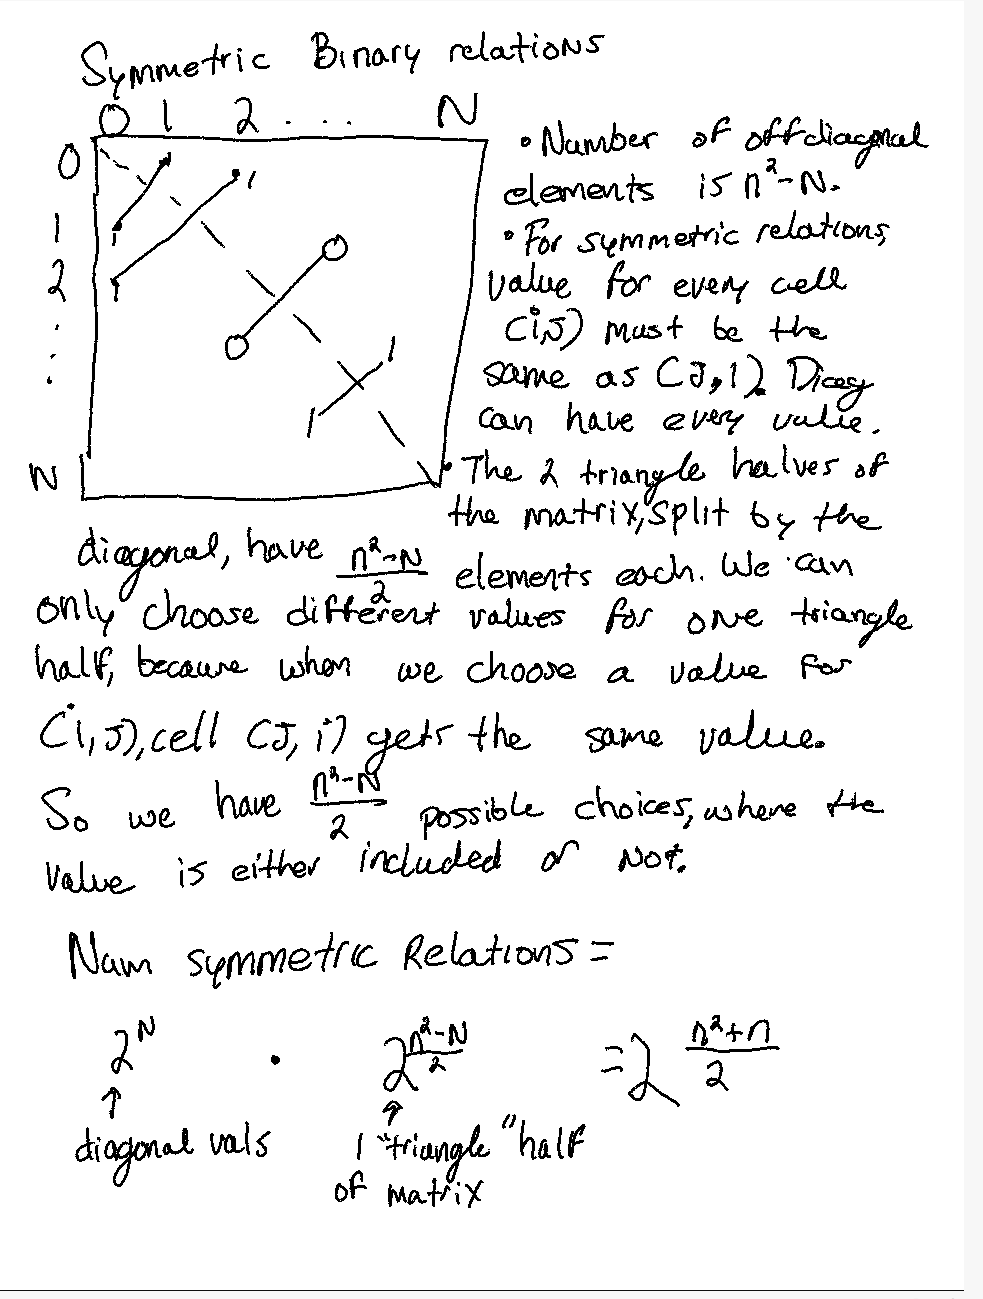 Symmetric Binary relations
0 1 2 . . . N
0
1
2
:
N
1
1
1
1
1
1
• Number of offdiagonal
elements is n²-N.
• For symmetric relations,
value for every cell
(i,J) must be the
same as (J,i). Diag
can have every value.
• The 2 triangle halves of
the matrix, split by the
diagonal, have n²-N/2 elements each. We can
only choose different values for one triangle
half, because when we choose a value for
(i,J), cell (J,i) gets the same value.
So we have n²-N/2 possible choices, where the
value is either included or not.
Num symmetric Relations =
2^N · 2^(n²-N/2) = 2^(n²+n/2)
↑ ↑
diagonal vals 1 "triangle" half
of matrix